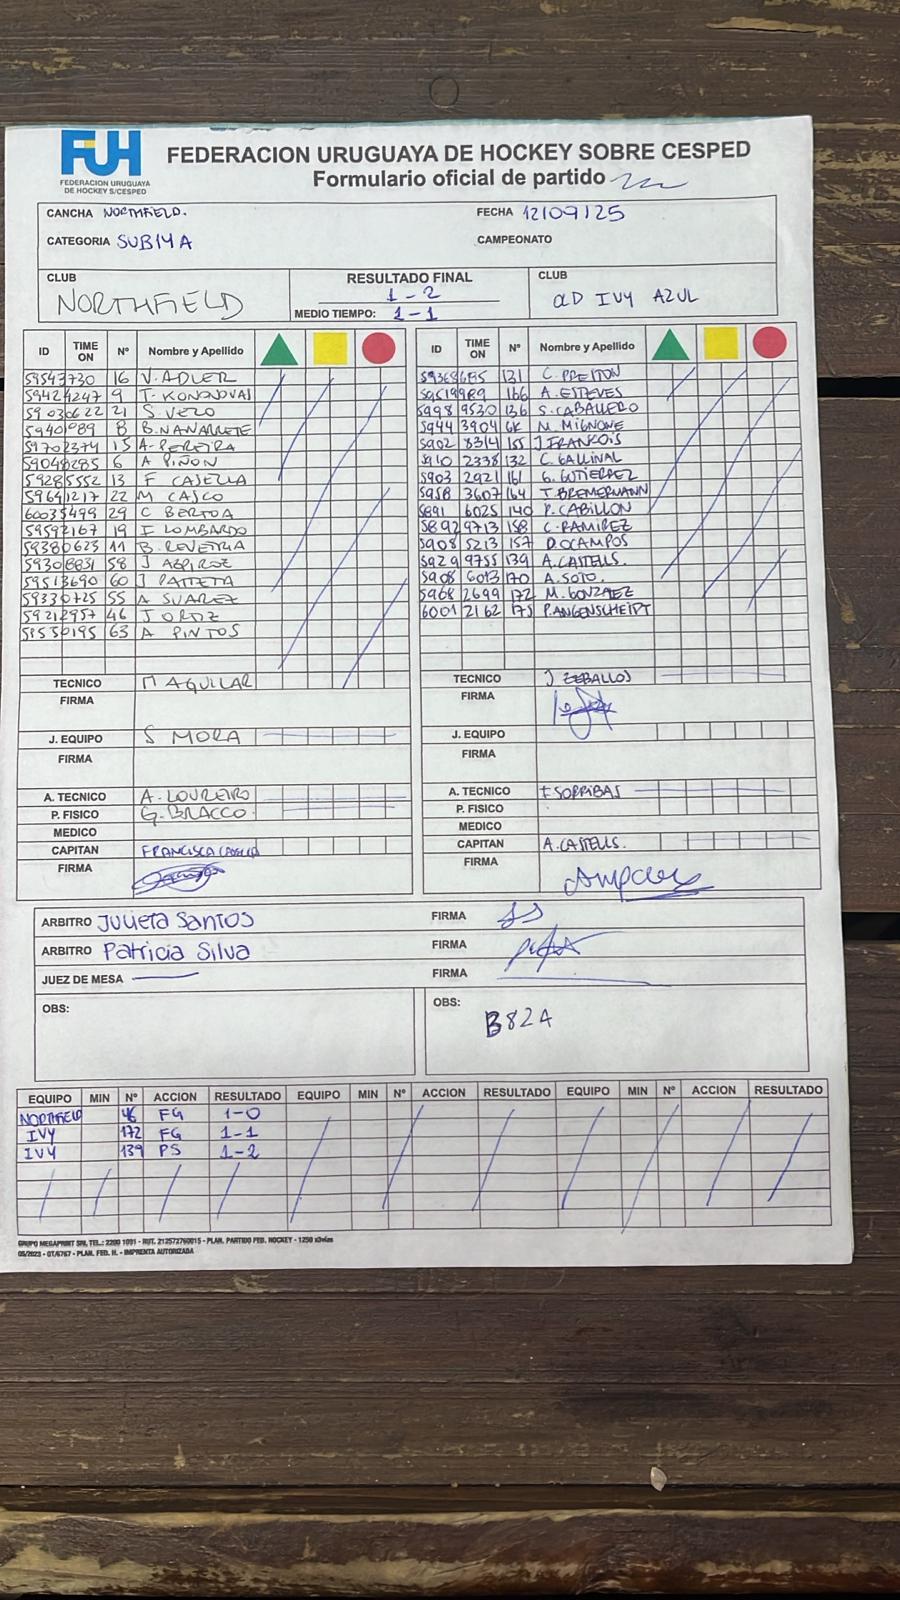 FUH
FEDERACION URUGUAYA
DE HOCKEY S/CESPED
FEDERACION URUGUAYA DE HOCKEY SOBRE CESPED
Formulario oficial de partido
CANCHA NORTHFIELD.
FECHA 12/09/25
CATEGORIA SUB14 A
CAMPEONATO
CLUB
NORTHFIELD
RESULTADO FINAL
1-2
MEDIO TIEMPO: 1-1
CLUB
OLD IVY AZUL
ID TIME ON Nº Nombre y Apellido
59543730 16 V. ADLER
59424247 9
59030622 21 S. VEZO
8 B. NAVARRETE
59702374 15 A. PEREIRA
59048285 6 A PIÑON
59285552 13 F CASELLA
59641217 22 M CASCO
60035499 29 C BERTOA
59592167 19 I LOMBARDO
59380623 11 B. REVETRIA
58 J AZPIROZ
59513690 60
59330725 55 A SUAREZ
59212957 46
59550195 63 A PINTOS
TECNICO M AGUILAR
FIRMA
J. EQUIPO S MORA
FIRMA
A. TECNICO A. LOUREIRO
P. FISICO G. BRACCO.
MEDICO
CAPITAN FRANCISCA
FIRMA
ID TIME ON Nº Nombre y Apellido
131 C. PRESTON
166 A. ESTEVES
5998 9530 136 S. CABALLERO
5944 3904 M. MIGNONE
5902 8314 155 J FRANCOIS
5910 2338 132 C. GALLINAL
5903 2921 161 G. GUTIERREZ
5958 3607 164 T. BREMERMANN
5891 6025 140 P. CABILLON
5892 9713 158 C. RAMIREZ
5908 5213 157 D. OCAMPOS
5929 9755 139 A. CASTELLS.
5908 6013 170 A. SOTO.
5968 2699 172 M. GONZAEZ
6001 2162 175 P. ANGENSCHEIDT
TECNICO J ZEBALLOS
FIRMA
J. EQUIPO
FIRMA
A. TECNICO F SORRIBAS
P. FISICO
MEDICO
CAPITAN A. CASTELLS.
FIRMA
ARBITRO Julieta Santos FIRMA
ARBITRO Patricia Silva FIRMA
JUEZ DE MESA FIRMA
OBS:
OBS:
B82A
EQUIPO MIN Nº ACCION RESULTADO EQUIPO MIN Nº ACCION RESULTADO EQUIPO MIN Nº ACCION RESULTADO
NORTHFIELD 46 FG 1-0
IVY 172 FG 1-1
IVY 139 PS 1-2
GRUPO MEGAPRINT SRL TEL.: 2200 1091 - RUT. 212572760015 - PLAN. PARTIDO FED. HOCKEY - 1250 x3vías
05/2023 - OT/6767 - PLAN. FED. H. - IMPRENTA AUTORIZADA